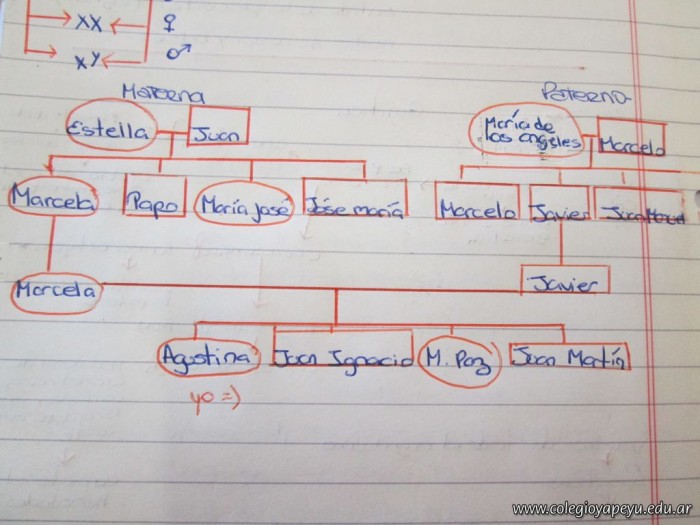 XX ♀
XY ♂
Materna Paterna
Estella Juan María de los angeles Marcelo
Marcela Papo María José Jóse maría Marcelo Javier Juan
Marcela Javier
Agustina Juan Ignacio M. Paz Juan Martín
yo =)
www.colegioyapeyu.edu.ar